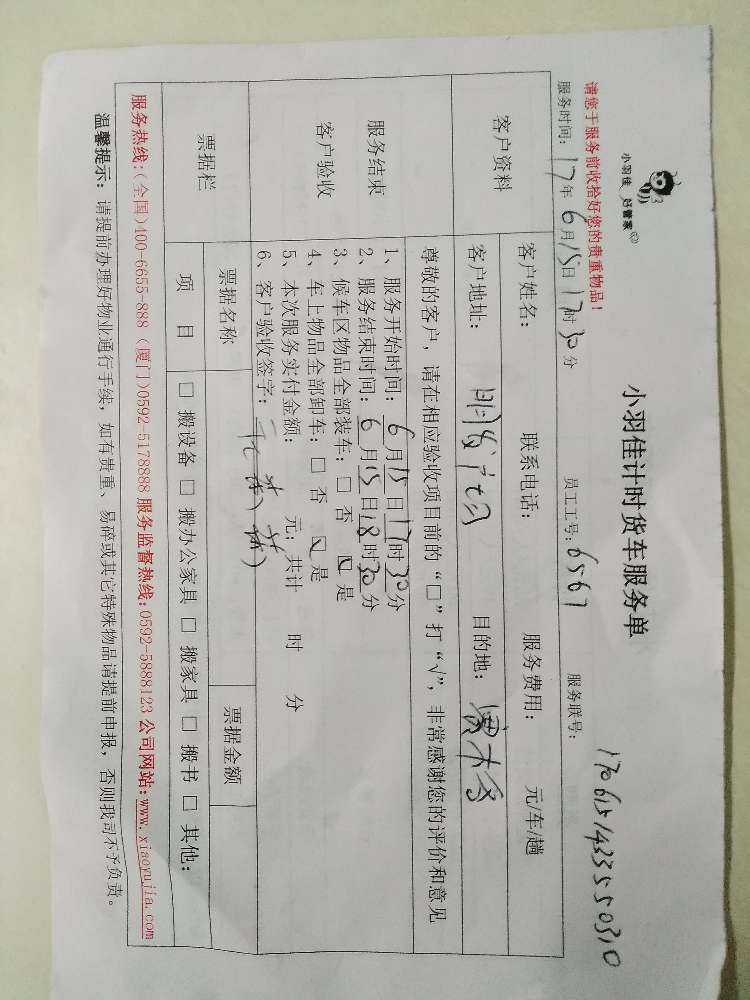 小羽佳 好管家
小羽佳计时货车服务单
17061514233550310
请您于服务前收拾好您的贵重物品！
服务时间：17年6月15日17时30分 员工工号：6567 服务联号：
客户资料
客户姓名： 联系电话： 服务费用： 元/车/趟
客户地址： 目的地：
尊敬的客户，请在相应验收项目前的“□”打“√”，非常感谢您的评价和意见
服务结束
客户验收
1、服务开始时间：6月15日17时30分
2、服务结束时间：6月15日18时30分
3、候车区物品全部装车：□ 否 ☑ 是
4、车上物品全部卸车：□ 否 ☑ 是
5、本次服务实付金额： 元；共计 时 分
6、客户验收签字：
票据栏
票据名称 票据金额
项 目 □ 搬设备 □ 搬办公家具 □ 搬家具 □ 搬书 □ 其他：
服务热线：(全国)400-6655-888 (厦门)0592-5178888 服务监督热线：0592-5888123 公司网站：www.xiaoyujia.com
温馨提示：请提前办理好物业通行手续，如有贵重、易碎或其它特殊物品请提前申报，否则我司不予负责。